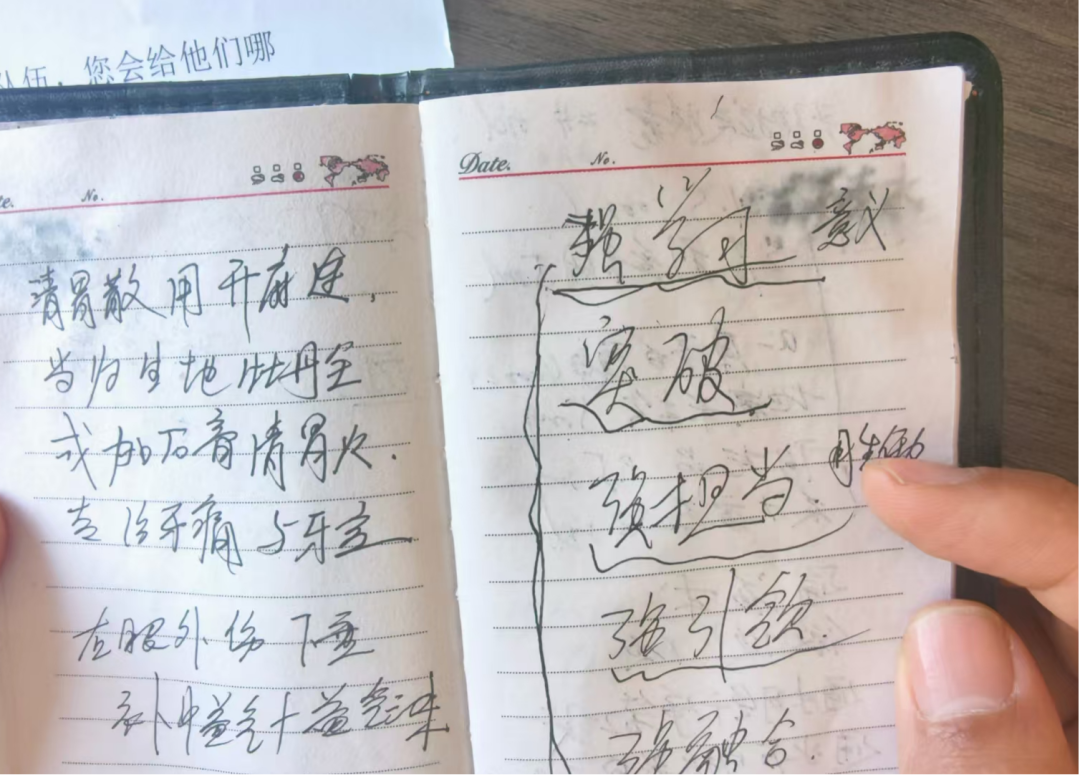 队伍，您会给他们哪
No.
清胃散用升麻连，
当归生地牡丹全
或加石膏清胃火．
去治牙痛与牙宣
左眼外伤 下垂
补中益气十益气
Date. No.
强学习 意义
突破
强担当
强引领
强融合